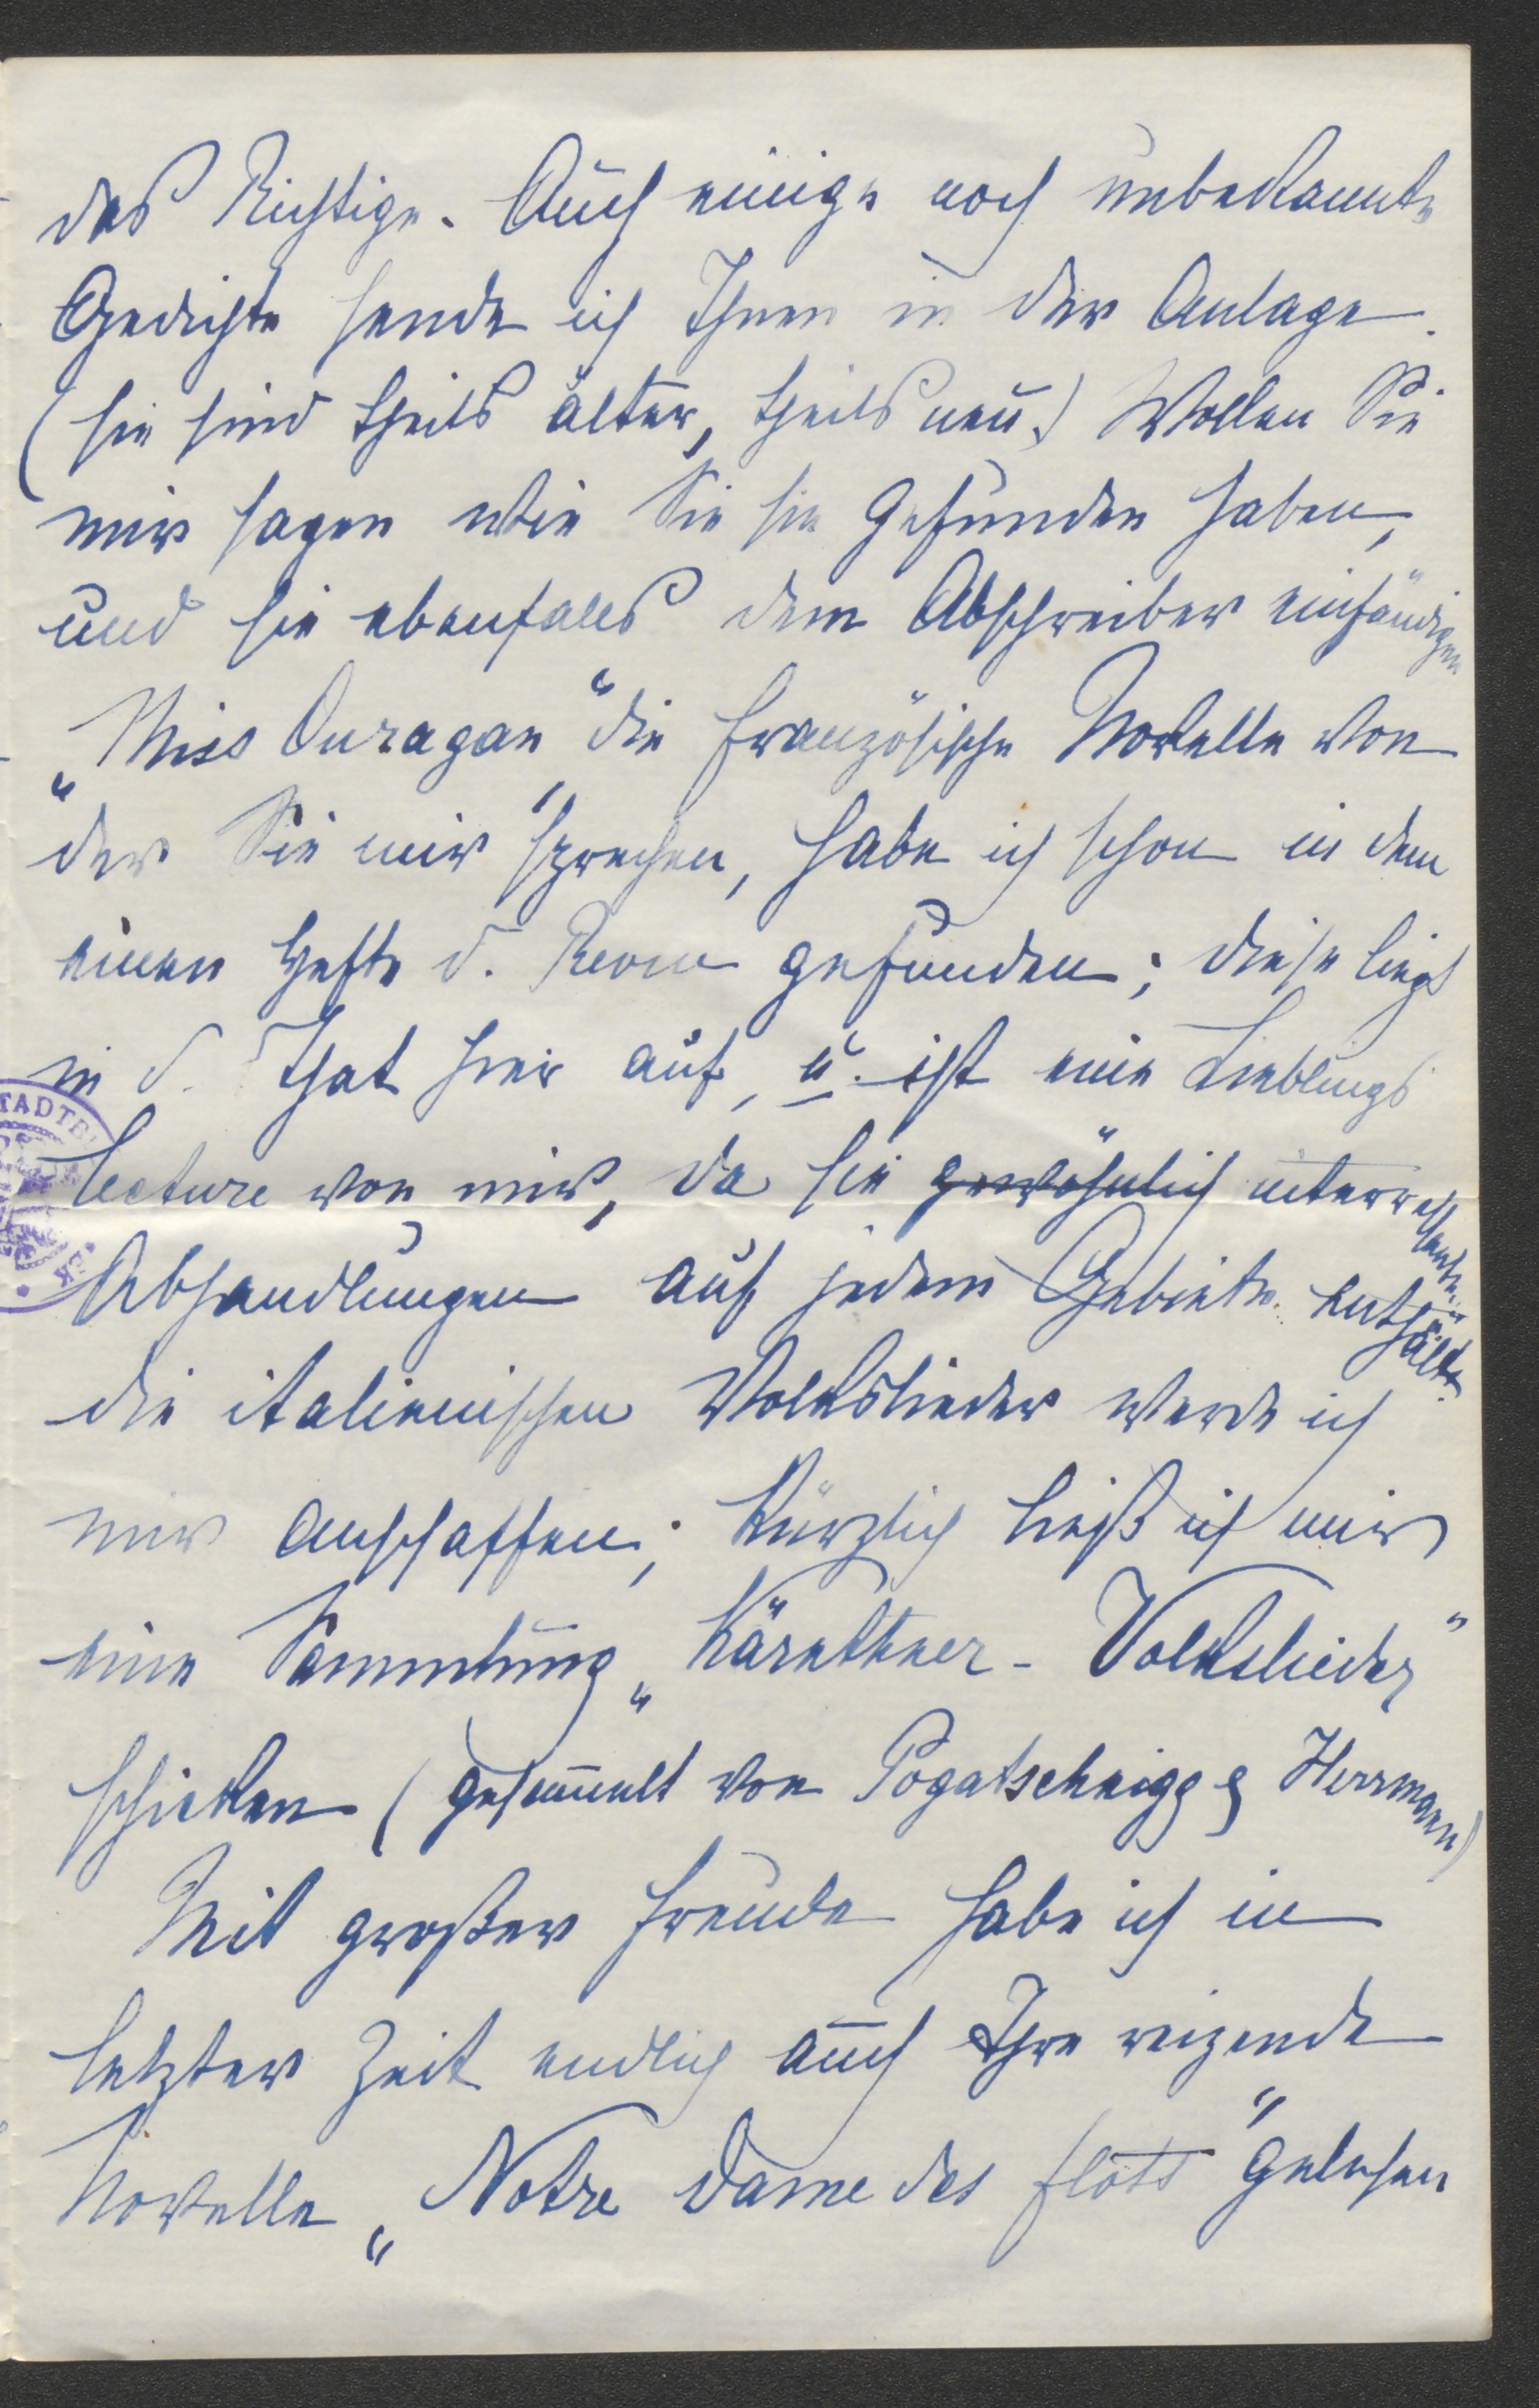 das Richtige. Auch einige noch unbekannte
Gedichte sende ich Ihnen in der Anlage.
(sie sind theils älter, theils neu.) Wollen Sie
mir sagen wie Sie sie gefunden haben,
und sie ebenfalls dem Abschreiber einhändigen
„Miss Ouragan“ die französische Novelle von
der Sie mir sprechen, habe ich schon in dem
einen Hefte d. Revue gefunden; diese liegt
in d. That hier auf, u. ist eine Lieblings
lecture von mir, da sie gewöhnlich interressante
Abhandlungen auf jedem Gebiete enthält.
die italienischen Volkslieder werde ich
mir anschaffen; kürzlich ließ ich mir
eine Sammlung „Kärnthner-Volkslieder“
schicken (gesammelt von Pogatschnigg & Herrmann)
Mit großer Freude habe ich in
letzter Zeit endlich auch Ihre reizende
Novelle „Notre Dame des flots“ gelesen